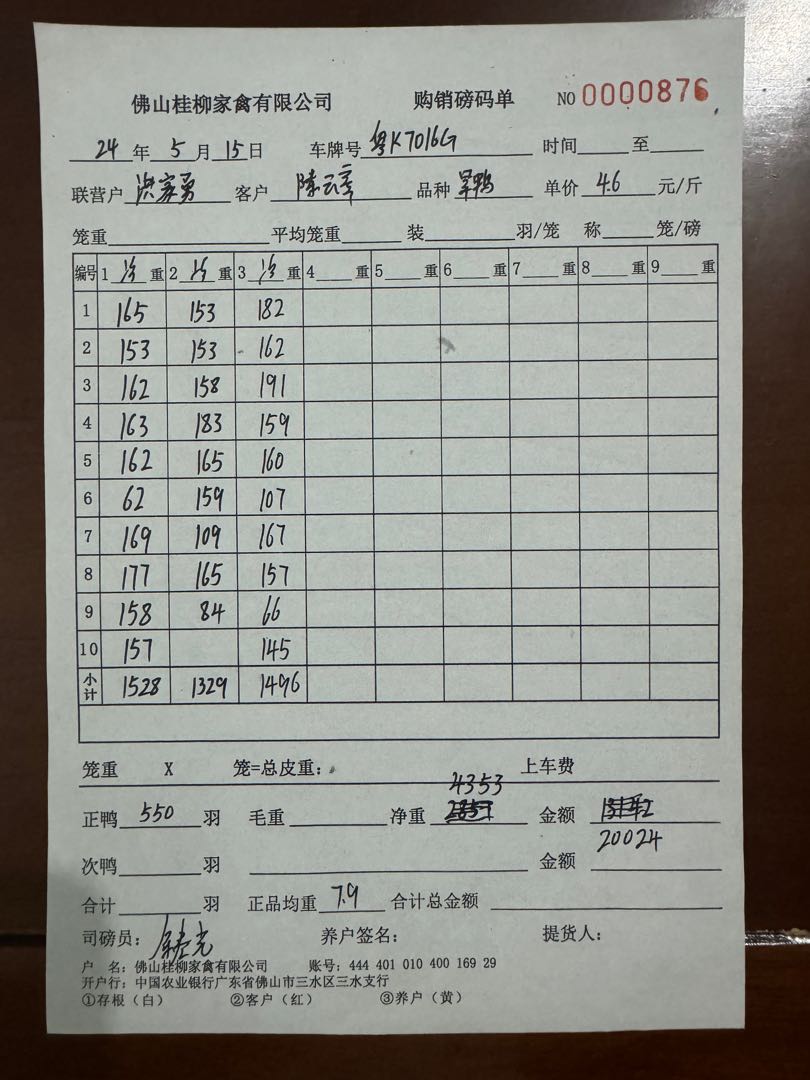 佛山桂柳家禽有限公司 购销磅码单 NO 0000876
24 年 5 月 15 日 车牌号 粤K7016G 时间 至
联营户 洪家勇 客户 陈云章 品种 旱鸭 单价 4.6 元/斤
笼重 平均笼重 装 羽/笼 称 笼/磅
编号 1 净 重 2 净 重 3 净 重 4 重 5 重 6 重 7 重 8 重 9 重
1 165 153 182
2 153 153 162
3 162 158 191
4 163 183 159
5 162 165 160
6 62 159 107
7 169 109 167
8 177 165 157
9 158 84 66
10 157 145
小计 1528 1329 1496
笼重 X 笼=总皮重: 上车费
4353
正鸭 550 羽 毛重 净重 金额
20024
次鸭 羽 金额
合计 羽 正品均重 7.9 合计总金额
司磅员: 养户签名: 提货人:
户 名: 佛山桂柳家禽有限公司 账号: 444 401 010 400 169 29
开户行: 中国农业银行广东省佛山市三水区三水支行
①存根（白） ②客户（红） ③养户（黄）